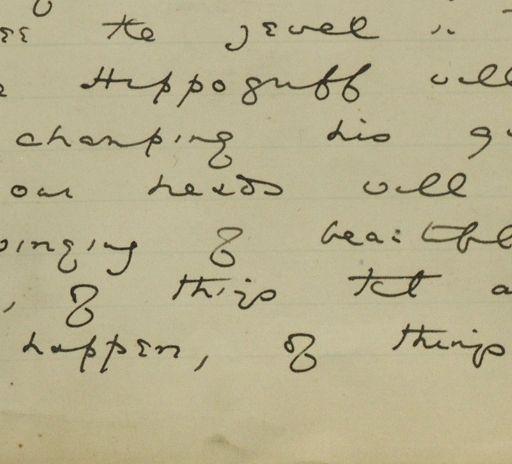 the jewel in
Hippogriff will
champing his
our heads will
singing of beautiful
, of things that
happen, of things